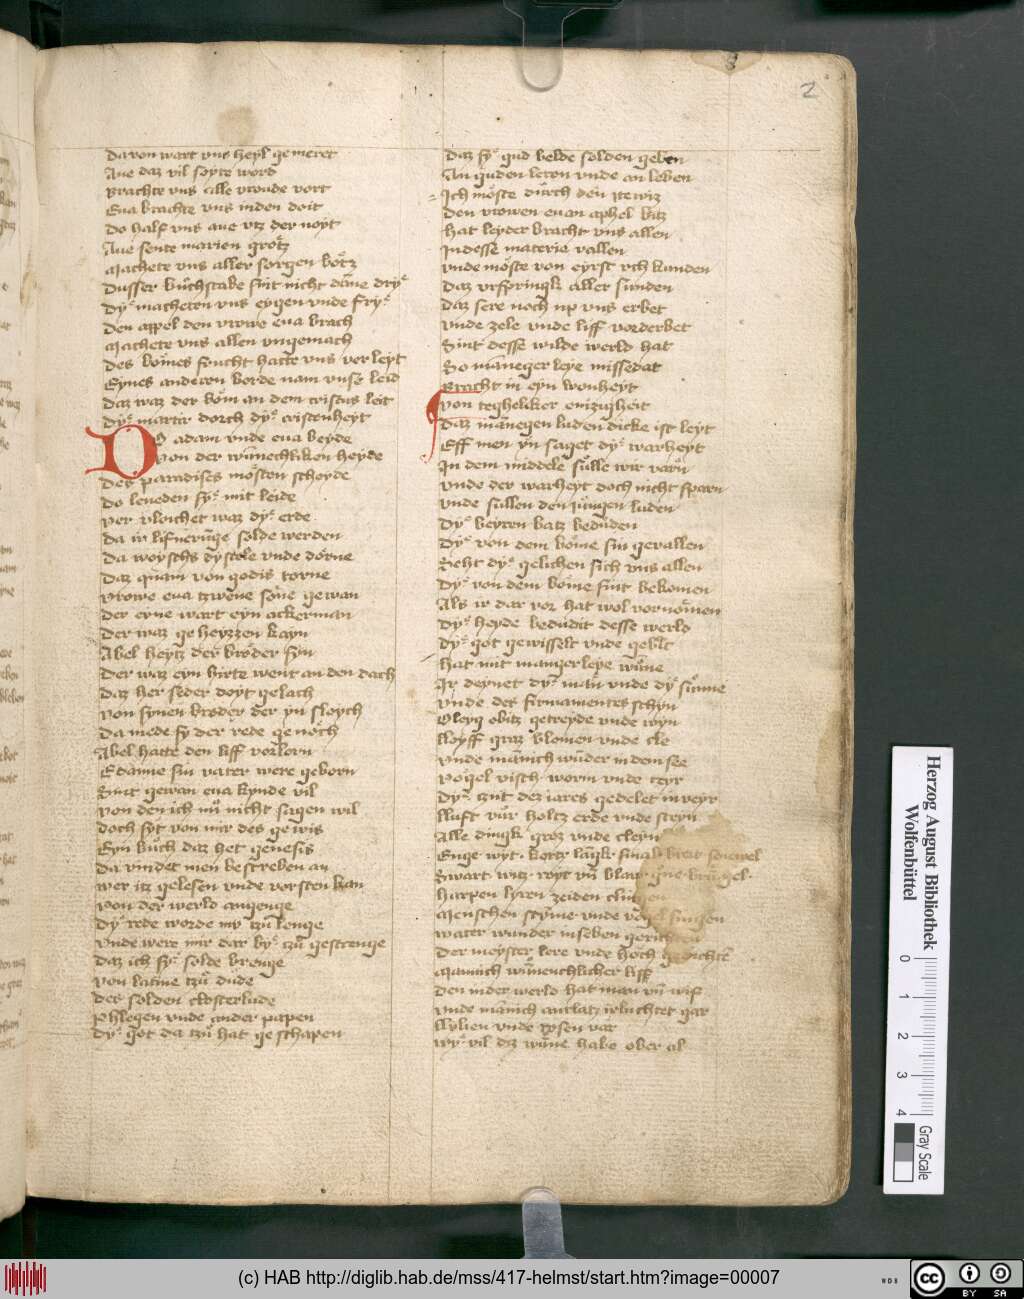 2
Da von wart vns heyl gemeret
Aue daz vil soyte word
Brachte vns alle vroude vort
Eua brachte vns in den doit
Do half vns aue vtz der noyt
Aue sente marien grötz
Machete vns aller sorgen bötz
Dusser bůchstabe sint nicht dāne dryͤ
Dyͤ macheten vns eygen vnde fryͤ
Den appel den vrowe eua brach
Machete vns allen vngemach
Des bömes frucht hatte vns verleyt
Eynes anderen borde nam vnse leid
Daz waz der böm an dem cristus leit
Dyͤ martir dorch dyͤ cristenheyt
Do adam vnde eua beyde
Von der wūnechliken heyde
Des paradises mösten scheyde
Do leueden syͤ mit leide
Ver vloichet waz dyͤ erde
Da ir lifneruͦge solde werden
Da woyschs dystele vnde dörne
Daz quam von godis torne
Vrowe eua tzwene söne gewan
Der eyne wart eyn ackerman
Der waz geheyzzen kayn
Abel heytz der broder syn
Der waz eyn hirte went an den dach
Daz her seder doyt gelach
Von synen kroder der yn sloych
Da mede sy der rede genöch
Abel hatte den liff verlorn
E danne sin vater were geborn
Sint gewan eua kynde vil
Von den ich nuͦ nicht sagen wil
Doch syt von mir des gewis
Eyn bůch daz het genesis
Da vindet men bescreben an
Wer itz gelesen vnde vorsten kan
Von der werld angenge
Dyͤ rede worde my tzuͦ lenge
Vnde were mir dar byͤ tzuͦ gestrenge
Daz ich syͤ solde brenge
Von latine tzuͦ dude
Des solden closterlude
Phlegen vnde ander papen
Dyͤ got da tzuͦ hat geschapen
Daz syͤ gud belde solden geben
An guden leren vnde an leben
Ich möste durch den itewiz
Den vrowen euan aphel bitz
Hat leyder bracht vns allen
In desse materie vallen
Vnde möste von eyrst vch kunden
Daz vrspringk aller sunden
Daz sere noch vp vns erbet
Vnde zele vnde liff vorderbet
Sint desse wilde werld hat
So maneger leye missedat
Bracht in eyn wonheyt
Von tegheliker emzigheit
Daz mānegen luden dicke ist leyt
Eff men yn saget dyͤ warheyt
In dem middele sülle wir varn
Vnde der warheyt doch nicht sparn
Vnde sullen den jungen luden
Dyͤ beyren batz beduden
Dyͤ von dem böme sin gevallen
Seht dyͤ gelichen sich vns allen
Dyͤ von dem böme sint bekomen
Als ir dar vor hat wol vornomen
Dyͤ heyde bedudit desse werld
Dyͤ got gewisselt vnde gebilt
Hat mit mangerleye wūne
Ir deynet dyͤ man vnde dyͤ sūnne
Vnde des firmamentes schyn
Oleyg obitz getreyde vnde wyn
Lloyff graz blomen vnde cle
Vnde mānich wūder in dem see
Vögel visch worm vnde teyr
Dyͤ tznt dez iares gedelet in veyr
Lluft vůr holtz erde vnde steyn
Alle dingk groz vnde cleyn
Enge wyt kortz lāgk smal breit
Swart witz royt vn̄ blaw
Harpen lyren zeiden
Menschen stÿme vnde
Water wunder in seben
Der meyster lere vnde hoch
Mannich wūnenchlicher liff
Den in der werld hat man vn̄ wiff
Vnde mānich antlatz irluchtet gar
Llylien vnde rosen var
Wyͤ vil diz wūne habe ober al
Herzog August Bibliothek
Wolfenbüttel
0
1
2
3
4
Gray Scale
(c) HAB http://diglib.hab.de/mss/417-helmst/start.htm?image=00007
WDB
cc
BY SA